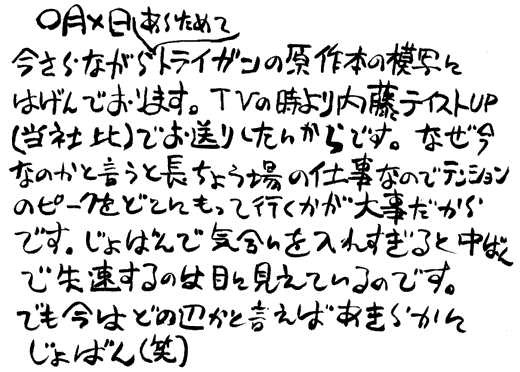 〇月×日
あらためて
今さらながらトライガンの原作本の模写に
はげんでおります。TVの時より内藤テイストUP
(当社比)でお送りしたいからです。なぜ今
なのかと言うと長ちょう場の仕事なのでテンション
のピークをどこにもって行くかが大事だから
です。じょばんで気合いを入れすぎると中ばん
で失速するのは目に見えているのです。
でも今はどの辺かと言えばあきらかに
じょばん(笑)